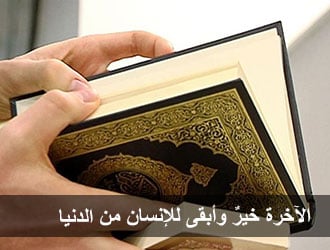 الآخرة خيرٌ وأبقى للإنسان من الدنيا